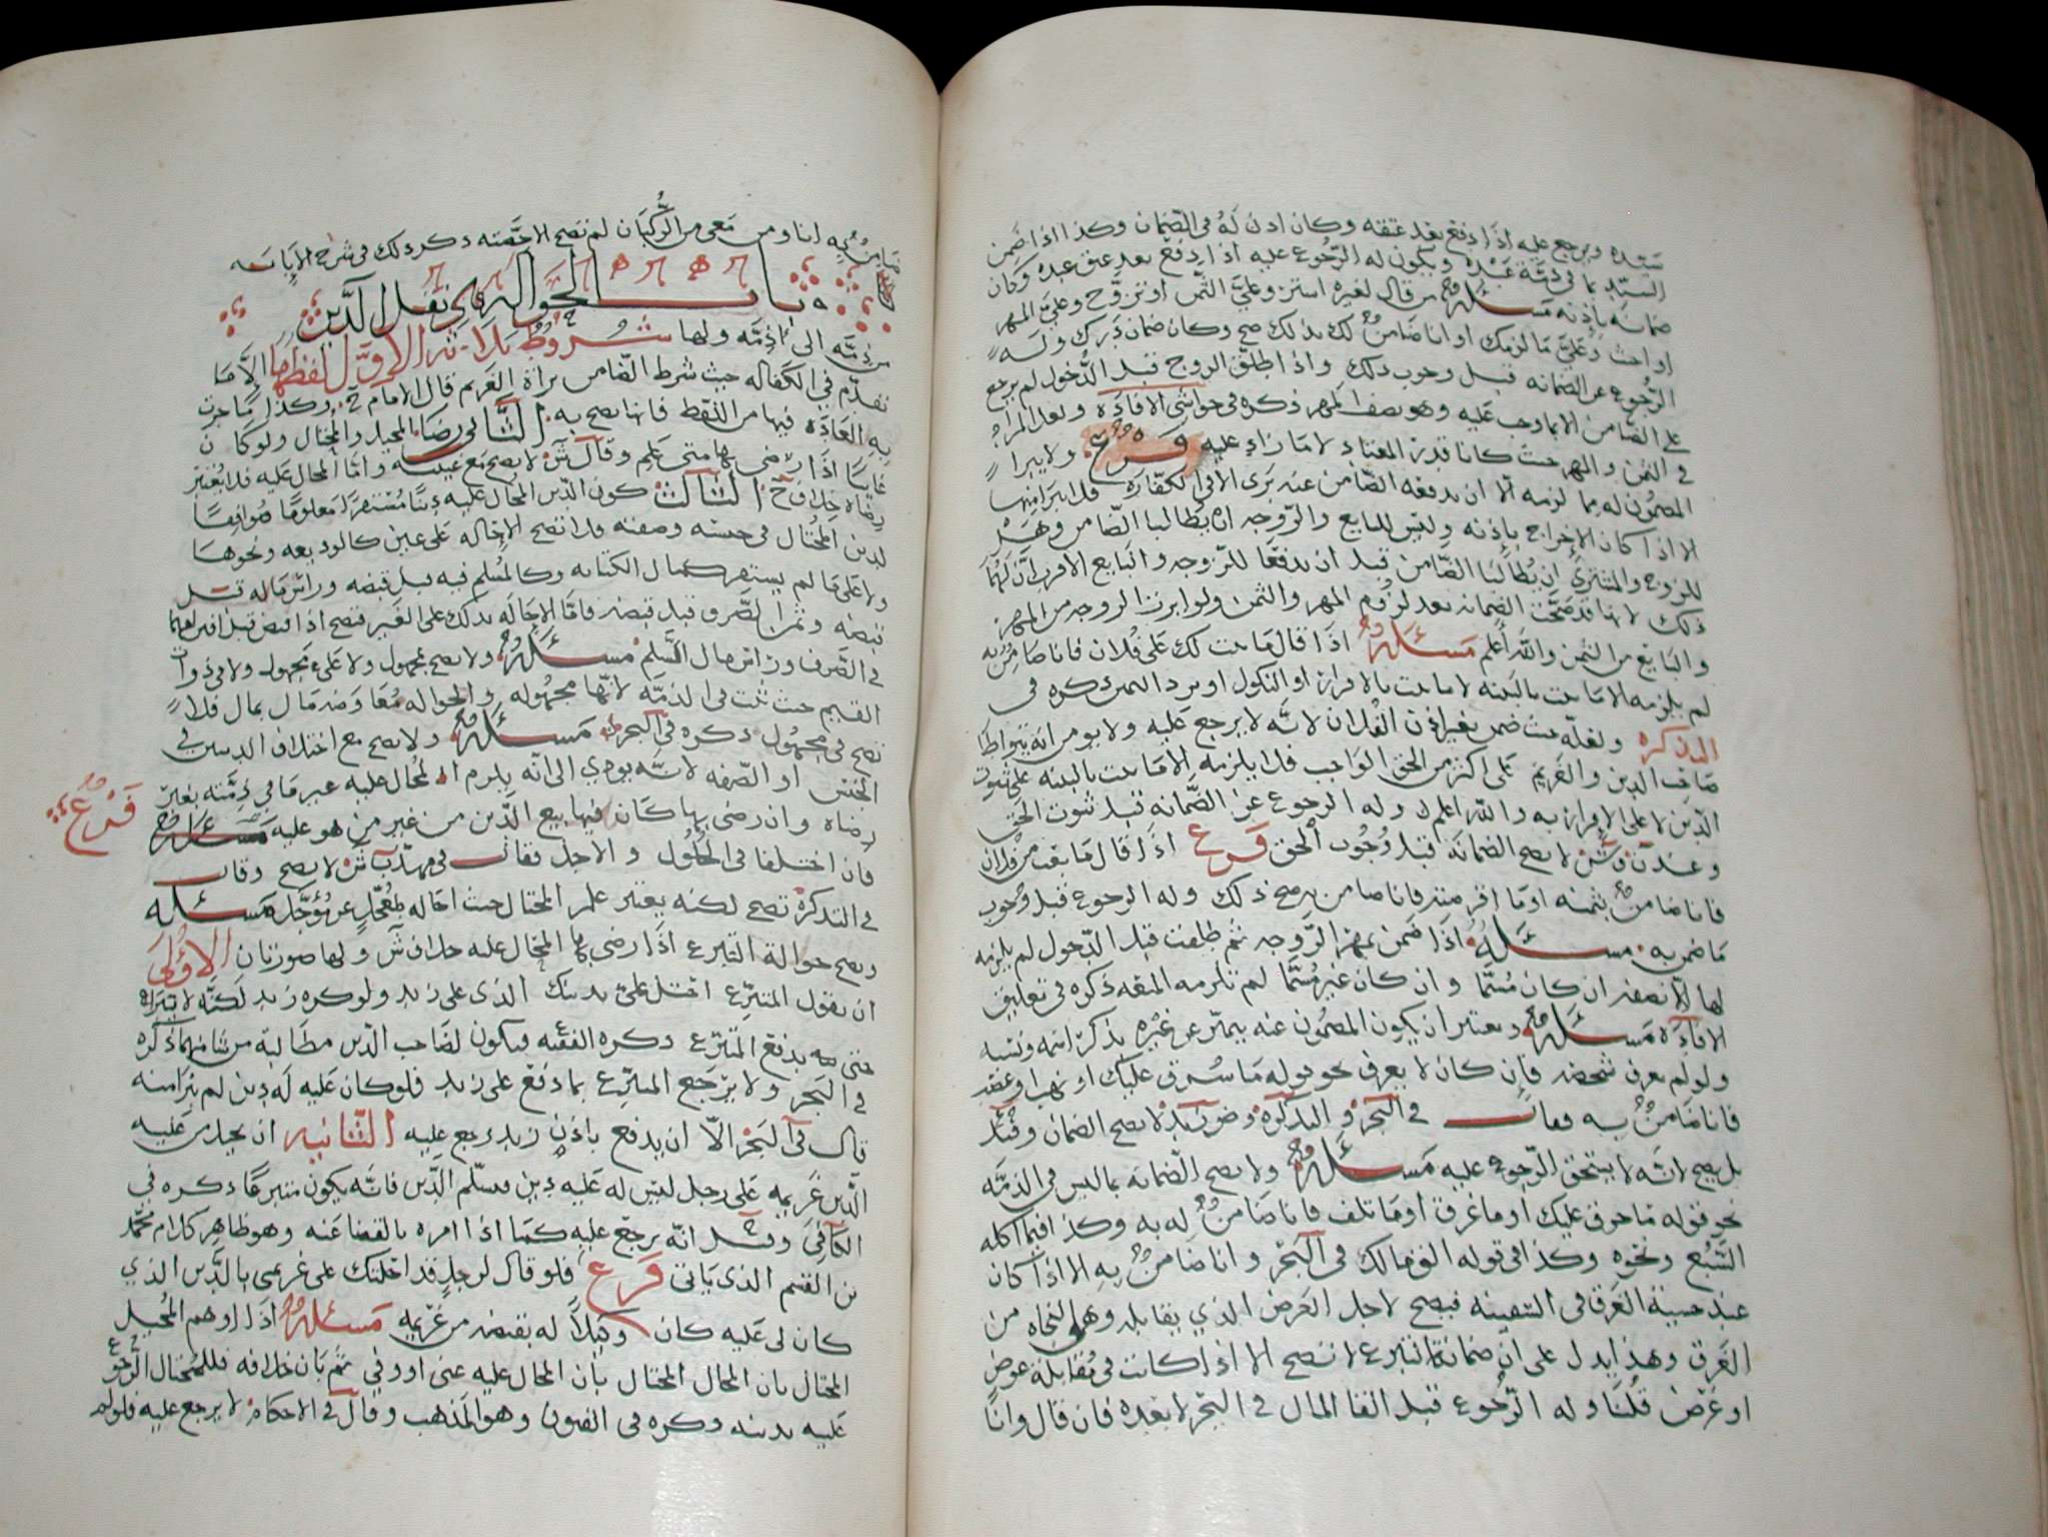 سيده ويرجع عليه اذا دفع بعد عتقه وكان اذن له في الضمان وكذا اذا ضمن
السيد بما في ذمة عبده ويكون له الرجوع عليه اذا دفع بعد عتق عبده وكان
ضمانه باذنه مسئلة من قال لغيره اشتر وعليّ الثمن او تزوج وعليّ المهر
او وعليّ ما لزمك او انا ضامن لك بذلك صح وكان ضمان درك وله
الرجوع عن الضمانه قبل وجوب ذلك واذا طلق الزوج قبل الدخول لم يرجع
على الضامن الا بما وجب عليه وهو نصف المهر ذكره في حواشي الافادة ولعل المراد
في الثمن والمهر حيث كانا قدر المعتاد لا ما زاد عليه فرع ولا يبرا
المضمون له مما لزمه الا ان يدفعه الضامن عنه الا في الكفارة فلا يبرا منها
الا اذا كان الاخراج باذنه وليس للبايع والزوجه ان يطالبا الضامن وهل
للزوج والمشتري ان يطالبا الضامن قبل ان يدفعا للزوجه والبايع الاقرب ان لهما
ذلك لانها قد صحت الضمانه بعد لزوم المهر والثمن ولو ابرت الزوجه من المهر
والبايع من الثمن والله اعلم مسئلة اذا قال ما ثبت لك على فلان فانا ضامن به
لم يلزمه الا ما ثبت بالبينه لا ما ثبت بالاقرار او النكول او برد اليمين ذكره في
التذكره ولعله حيث ضمن بغير اذن الفلان لانه لا يرجع عليه ولا يومن انه يتواطا
صاحب الدين والغريم على اكثر من الحق الواجب فلا يلزمه الا ما ثبت بالبينه على ثبوت
الدين لا على الاقرار به والله اعلم وله الرجوع عن الضمانه قبل ثبوت الحق
وعند لا تصح الضمانه قبل وجوب الحق فرع اذا قال ما بعت من فلان
فانا ضامن بثمنه او ما فانا ضامن به صح ذلك وله الرجوع قبل وجوب
ما ضمن به مسئلة اذا ضمن بمهر الزوجه ثم طلقت قبل الدخول لم يلزمه
لها الا نصفه ان كان مسمّا وان كان غير مسمّا لم تلزمه المتعه ذكره في تعليق
الافادة مسئلة ويعتبر ان يكون المضمون عنه يتميز عن غيره بذكر اسمه ونسبه
ولو لم يعرف شخصه فان كان لا يعرف نحو قوله ما سُرق عليك او نهب او غصب
فانا ضامن به فقال في البحر والتذكره لا يصح الضمان وقيل
بل يصح لانه لا يستحق الرجوع عليه مسئلة ولا تصح الضمانه بما ليس في الذمه
نحو قوله ما حرق عليك او ما غرق او ما تلف فانا ضامن له به وكذا فيما اكله
السبع ونحوه وكذا في قوله الق مالك في البحر وانا ضامن به الا اذا كان
عند خشية الغرق في السفينه فيصح لاجل الغرض الذي يقابله وهو النجاه من
الغرق وهذا يدل على ان ضمانة التبرع لا تصح الا اذا كانت في مقابلة عوض
او غرض قلنا وله الرجوع قبل القا المال في البحر لا بعده فان قال وانا
ضامن به انا ومن معي من الركبان لم تصح الا حصته ذكر ذلك في شرح الابانه
باب الحواله هي نقل الدين
من ذمه الى ذمه ولها شروط ثلاثه الاول لفظها الا ما
تقدم في الكفاله حيث شرط الضامن براة الغريم قال الامام ح وكذا ما جرت
به العاده فيها من اللفظ فانها تصح به الثاني رضا المحيل والمحتال ولو كان
غايبا اذا رضي بها متى علم وقال ش لا تصح مع غيبته واما المحال عليه فلا يعتبر
رضاه خلاف ح الثالث كون الدين المحال عليه دينا مستقرا معلوما موافقا
لدين المحتال في جنسه وصفته فلا تصح الاحاله على عين كالوديعه ونحوها
ولا على ما لم يستقر كمال الكتابه وكالمسلم فيه قبل قبضه وراس ماله قبل
قبضه وثمن الصرف قبل قبضه فاما الاحاله بذلك على الغير فتصح اذا قبض قبل افتراقهما
في الصرف وراس مال السلم مسئلة ولا تصح بمجهول ولا على مجهول ولا في ذوات
القيم حيث تثبت في الذمه لانها مجهوله والحواله معاوضه مال بمال فلا
تصح في مجهول ذكره في البحر مسئلة ولا تصح مع اختلاف الدينين في
الجنس او الصفه لانه يودي الى انه يلزم المحال عليه غير ما في ذمته بغير
رضاه وان رضي بها كان فيها بيع الدين من غير من هو عليه فرع
فان اختلفا في الحلول والاجل فقال في مهذب ش لا تصح وقال
في التذكرة تصح لكنه يعتبر علم المحتال حيث احاله بمعجل عن مؤجل مسئله
وتصح حوالة التبرع اذا رضي بها المحتال عليه خلاف ش ولها صورتان الاولى
ان يقول المتبرع احتل عليّ بدينك الذي على زيد ولو كره زيد لكنه لا تبرا
حتى يدفع المتبرع ذكره الفقيه ع فيكون لصاحب الدين مطالبة من شا منهما ذكره
في البحر ولا يرجع المتبرع بما دفع على زيد فلو كان عليه له دين لم يبرا منه
قال في البحر الا ان يدفع باذن زيد رجع عليه الثانيه ان يحيل من عليه
الدين غريمه على رجل ليس له عليه دين فيسلم الدين فانه يكون متبرعا ذكره في
الكافي وقيل انه يرجع عليه كما اذا امره بالقضا عنه وهو ظاهر كلام محمد
بن القسم الذي ياتي فرع فلو قال لرجل قد احلتك على غريمي بالدين الذي
كان لي عليه كان وكيلا له بقبضه من غريمه مسئلة اذا اوهم المحيل
المحتال بان المحال المحتال بان المحال عليه غني او وفي ثم بان خلافه فللمحتال الرجوع
عليه بدينه ذكره في الفنون وهو المذهب وقال في الاحكام لا يرجع عليه فلو لم